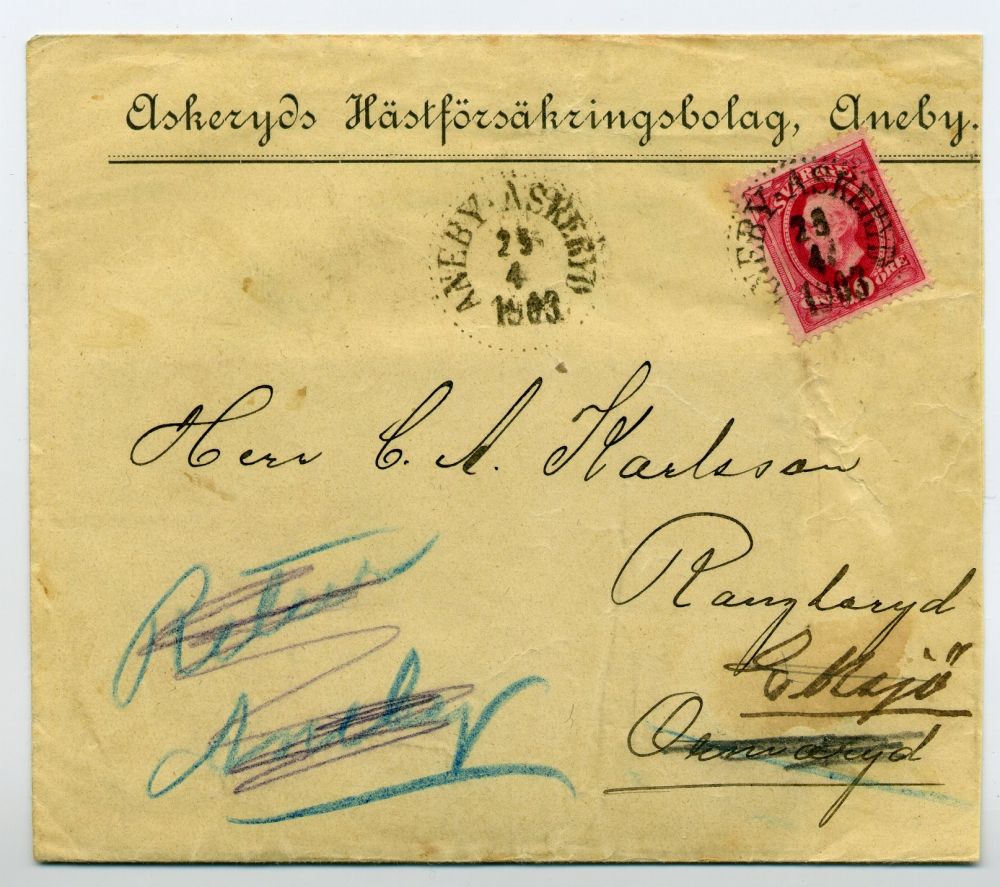 Askeryds Hästförsäkringsbolag, Aneby.
ANEBY-ASKERYD
25
4
1903
SVERIGE
ANEBY-ASKERYD
4
1903
ÖRE
Herr C. A. Karlsson
Retur
Aneby
Eksjö